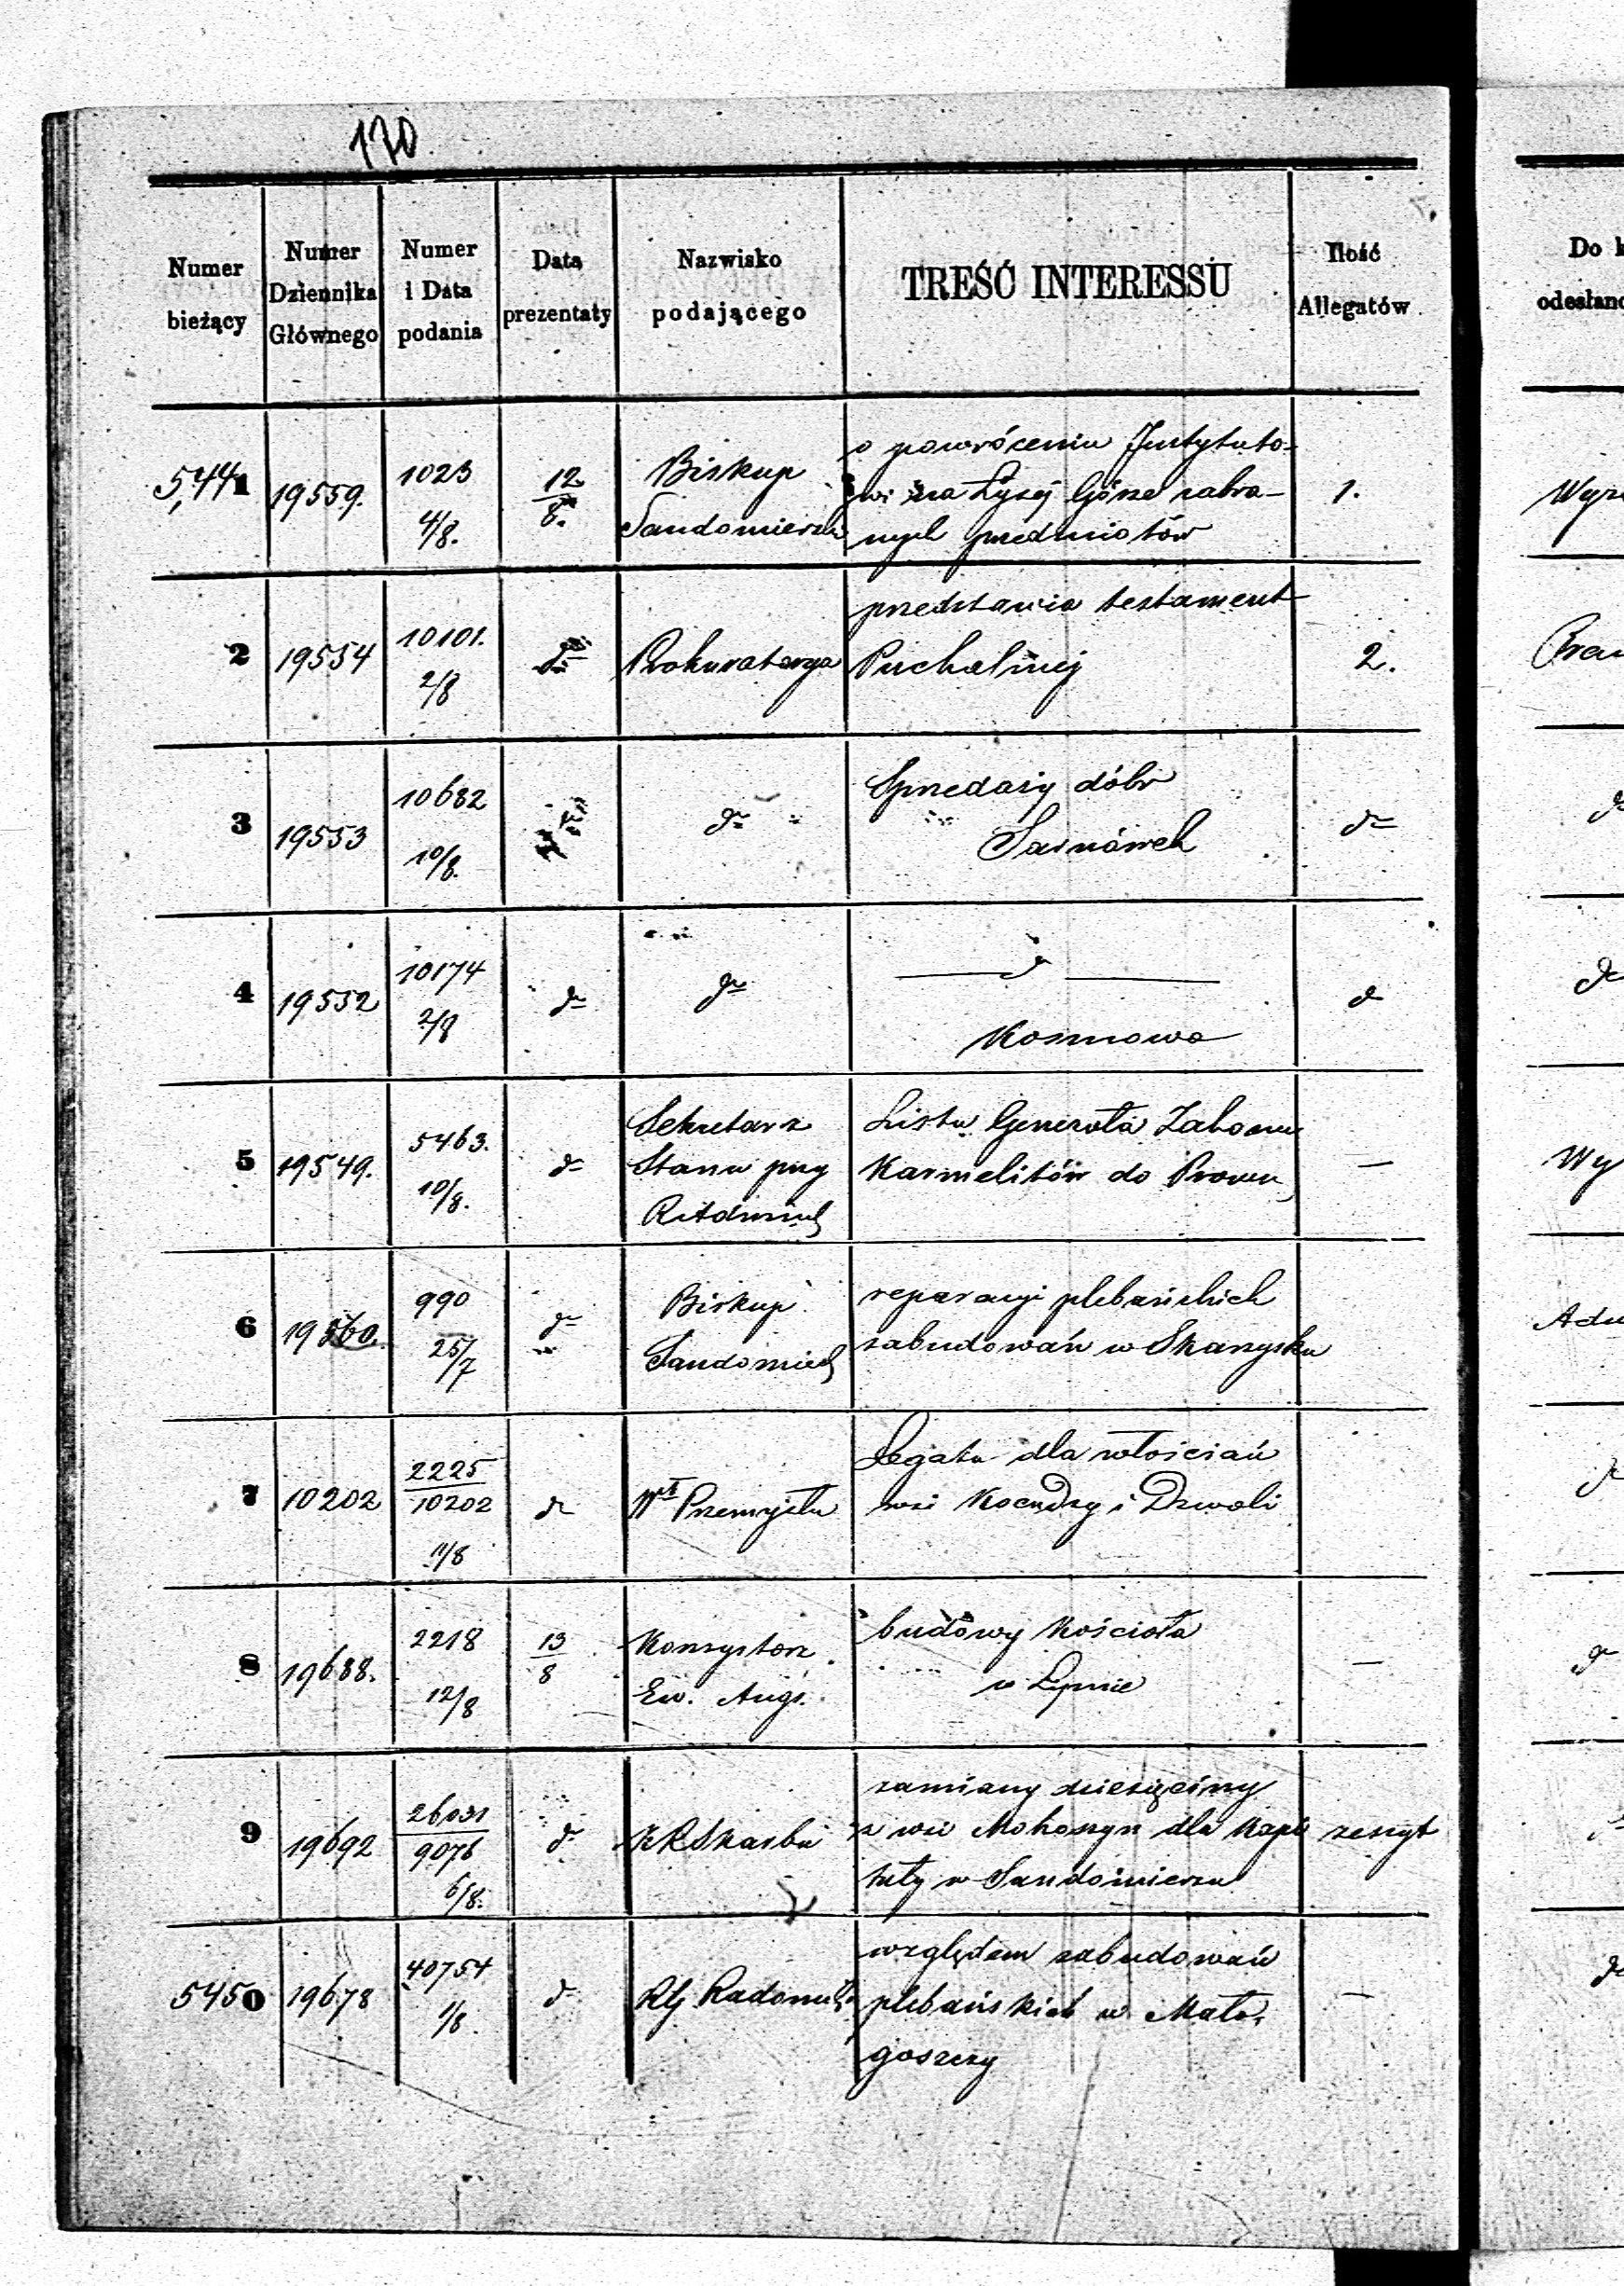 170
Numer bieżący
Numer Dziennika Głównego
Numer i Data podania
Data prezentaty
Nazwisko podającego
TREŚĆ INTERESSU
Ilość Allegatów
5,441 19559. 1023 4/8. 12/8. Biskup Sandomierski
o powróceniu Instytuto-
wi na Łysej Górze zabra-
nych przedmiotów
1.
2 19554 10101. 2/8 Prokuratorya
przedstawia testament
Puchalskiej
2.
3 19553 10682 10/8. do
Sprzedaży dóbr
Sarnówek
do
4 19552 10174 2/8 do do
d
Kosmowo
d
5 19549. 5463. 10/8. do
Sekretarz
Stanu przy
Listu Generała Zakonu
Karmelitów do Prowin
—
6 19560. 990 25/7 do
Biskup
Sandomierz
reparacyi plebańskich
zabudowań w Skarzysku
7 10202 2225/10202 11/8 do
Wł Przemysłu
Legatu dla włościan
wsi Kocudzy i Dzwoli
8 19688. 2218 12/8 13/8
Konsystorz
Ew. Augs.
budowy Kościoła
w Lipnie
—
9 19692 26031/9076 6/8. do
KRSkarbu
zamiany dziesięciny
z wsi Mokoszyn dla Kapi
tuły w Sandomierzu
zeszyt
5450 19678 40754 1/8. d
RG Radomski
względem zabudowań
plebańskich w Mało-
goszczy
—
Do
odesłano
Wy
Adm